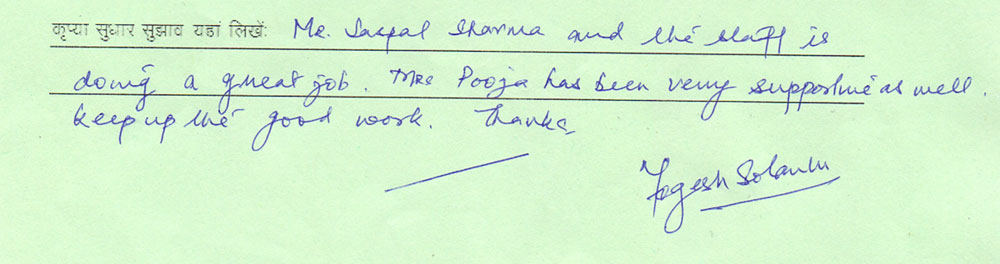 कृप्या सुधार सुझाव यहां लिखें: Mr. Jaspal Sharma and the staff is
doing a great job. Mrs Pooja has been very supportive as well.
keep up the good work. Thanks
Yogesh Solanki